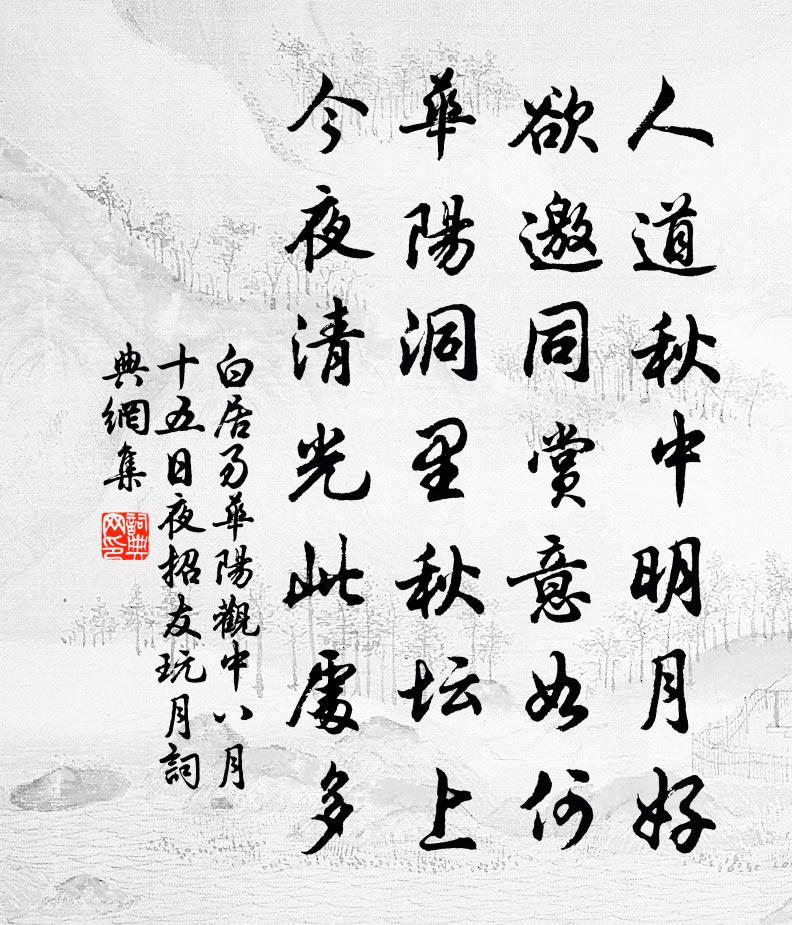 人道秋中明月好
欲邀同賞意如何
華陽洞里秋坛上
今夜清光此處多
白居易華陽觀中八月
十五日夜招友玩月詞
典網集
詞典
网印